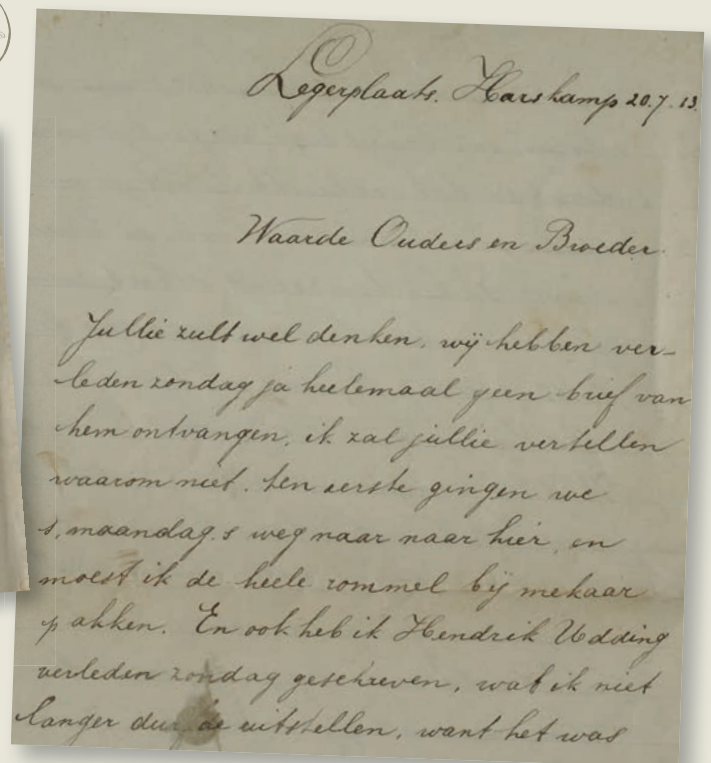 Legerplaats. Harskamp 20.7.13.
Waarde Ouders en Broeder.
Jullie zult wel denken, wij hebben ver-
leden zondag ja heelemaal geen brief van
hem ontvangen, ik zal jullie vertellen
waarom niet. ten eerste gingen we
s, maandag.s weg naar naar hier, en
moest ik de heele rommel bij mekaar
pakken. En ook heb ik Hendrik Udding
verleden zondag geschreven, wat ik niet
langer durfde uitstellen, want het was